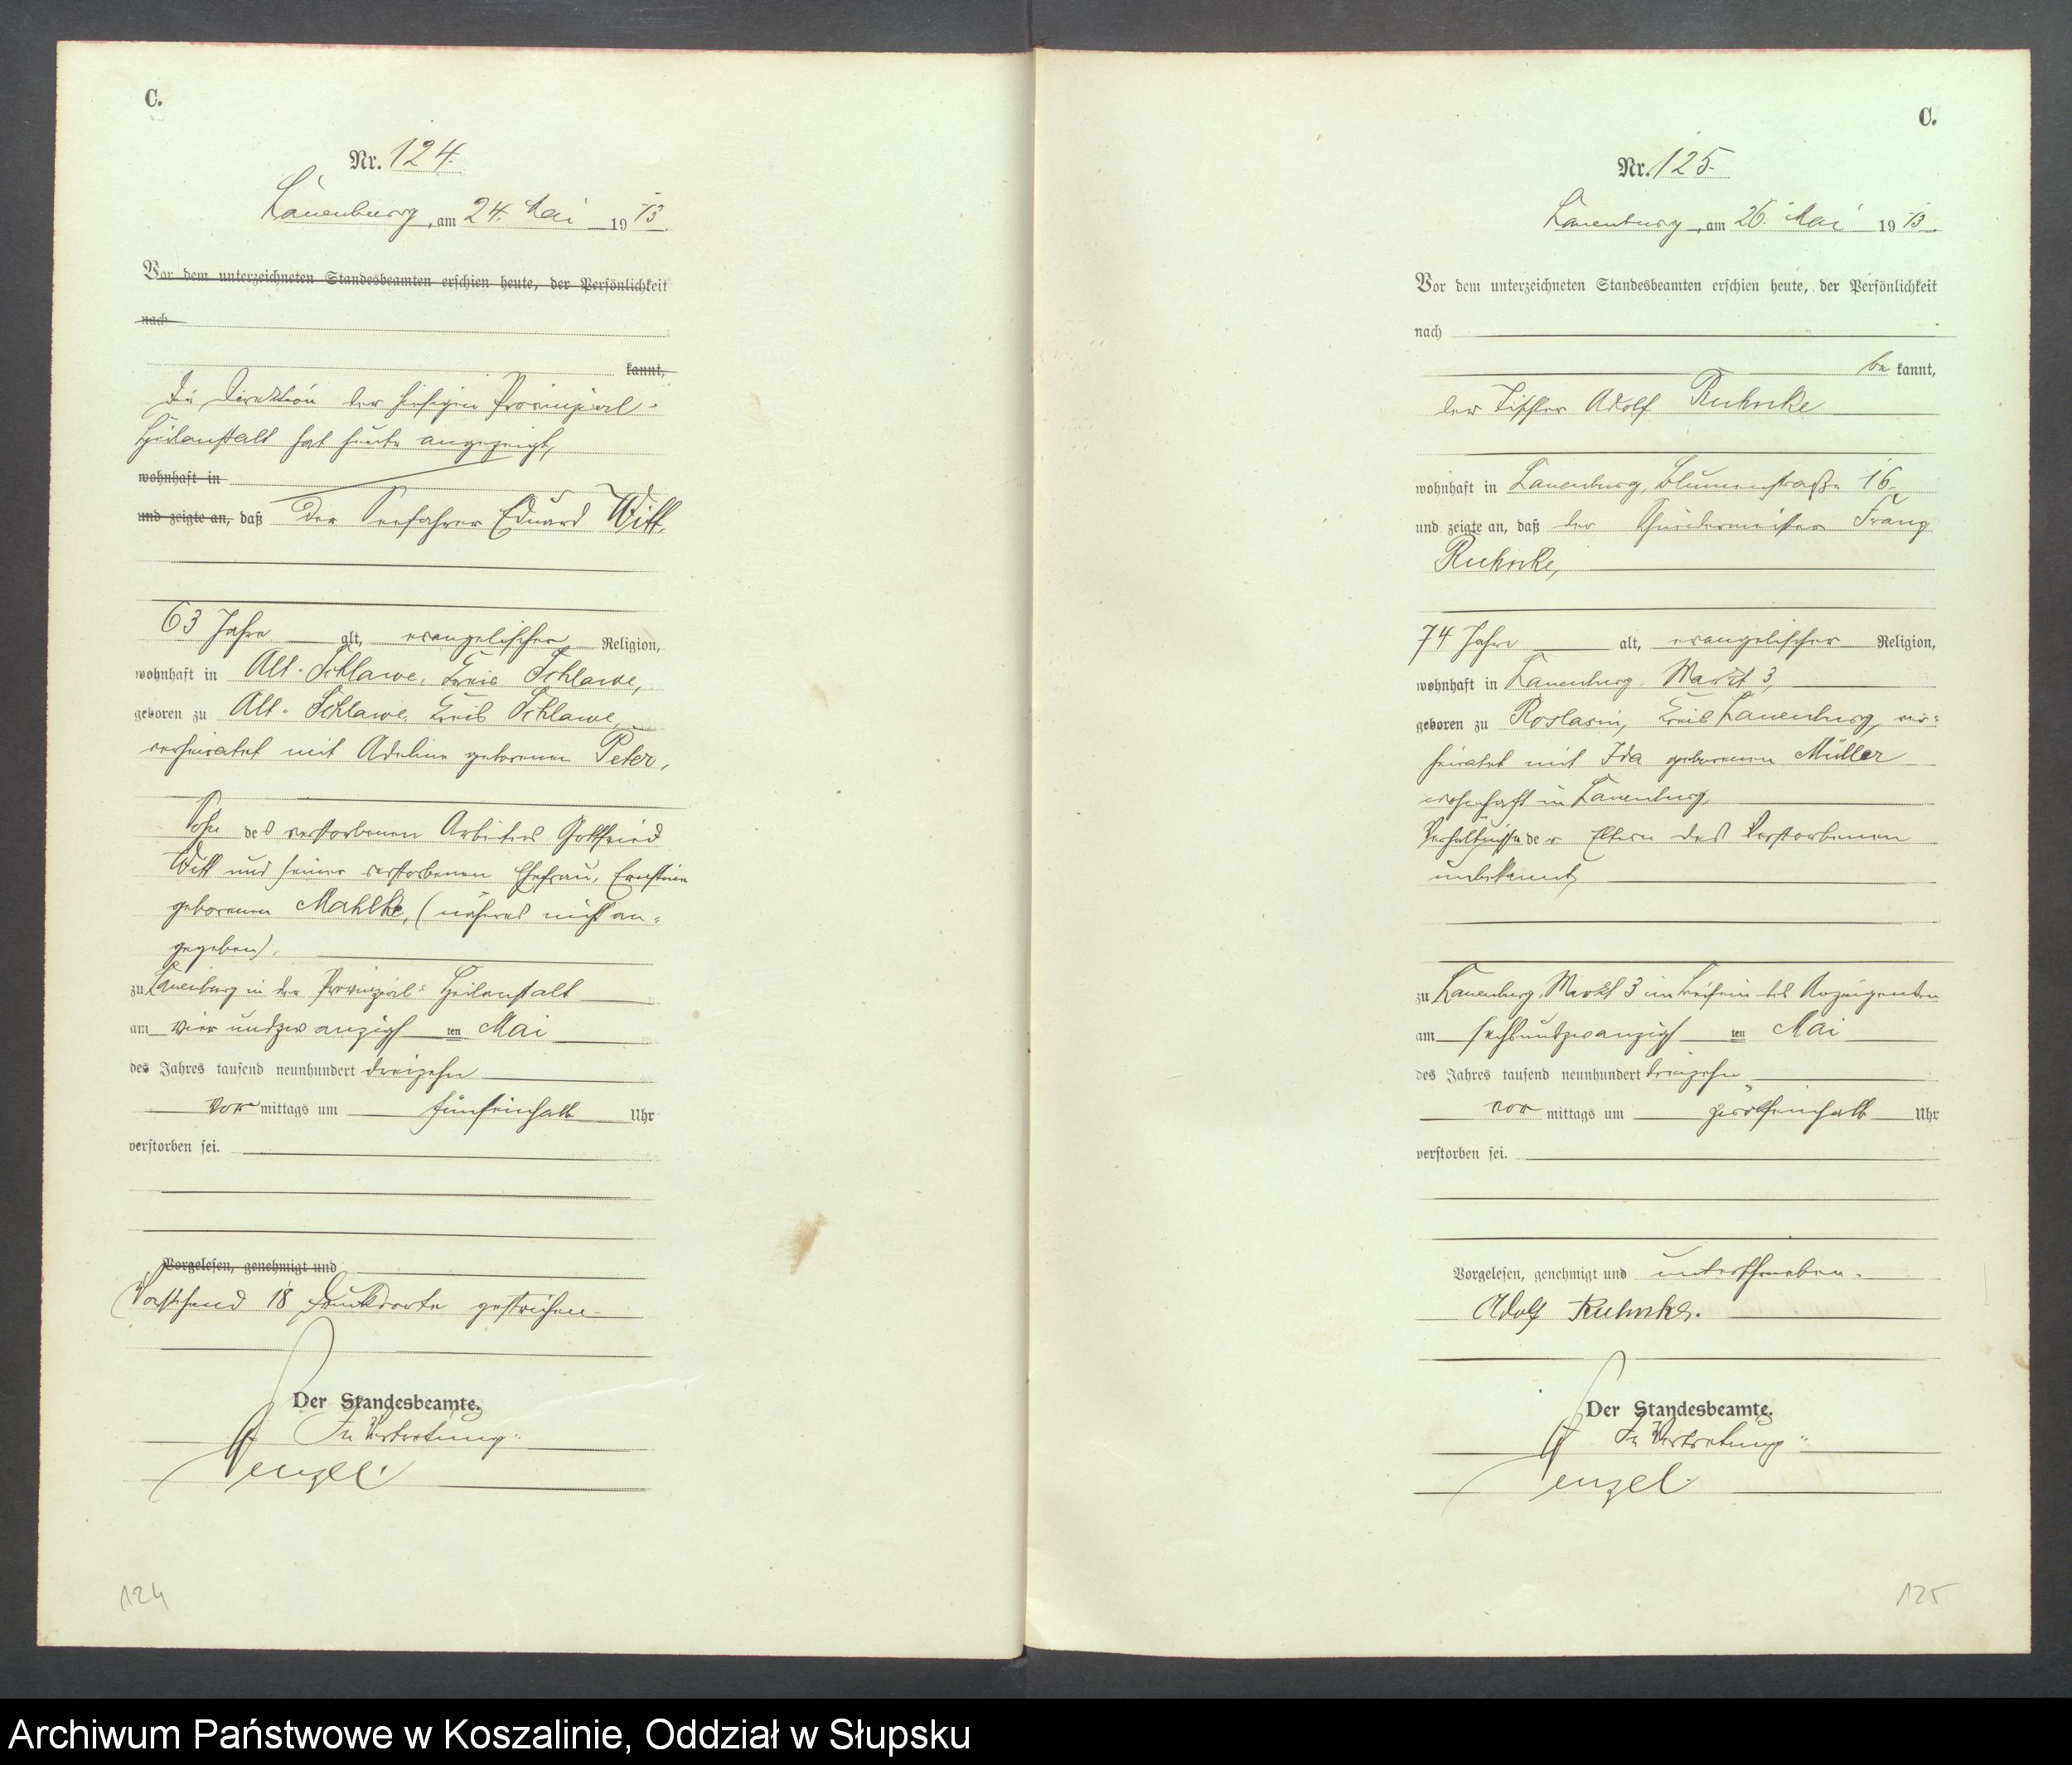 C.
Nr. 124.
Lauenburg, am 24. Mai 1913.
Vor dem unterzeichneten Standesbeamten erschien heute, der Persönlichkeit
nach
kannt,
Die Direktion der hiesigen Provinzial-
Heilanstalt hat heute angezeigt,
wohnhaft in
und zeigte an, daß der Seefahrer Eduard Witt,
63 Jahre alt, evangelischer Religion,
wohnhaft in Alt-Schlawe, Kreis Schlawe,
geboren zu Alt-Schlawe, Kreis Schlawe,
verheiratet mit Adeline geborenen Peter,
Sohn des verstorbenen Arbeiters Gottfried
Witt und seiner verstorbenen Ehefrau, Ernstine
geborenen Mahlke, (näheres nicht an=
gegeben),
zu Lauenburg in der Provinzial-Heilanstalt
am vierundzwanzigsten Mai
des Jahres tausend neunhundert dreizehn
Vormittags um fünfeinhalb Uhr
verstorben sei.
Vorgelesen, genehmigt und
Vorstehend 18 Druckworte gestrichen
Der Standesbeamte.
In Vertretung:
124
C.
Nr. 125.
Lauenburg, am 26. Mai 1913.
Vor dem unterzeichneten Standesbeamten erschien heute, der Persönlichkeit
nach
be kannt,
der Tischler Adolf Ruhnke
wohnhaft in Lauenburg, Blumenstraße 16
und zeigte an, daß der Franz
Ruhnke,
74 Jahre alt, evangelischer Religion,
wohnhaft in Lauenburg, Markt 3,
geboren zu Roslasin, Kreis Lauenburg, ver=
heiratet mit Ida geborenen Müller
wohnhaft in Lauenburg,
Verhältnisse der Eltern des Verstorbenen
unbekannt,
zu Lauenburg, Markt 3 im Beisein des Anzeigenden
am sechsundzwanzigsten Mai
des Jahres tausend neunhundert dreizehn
vormittags um zwölfeinhalb Uhr
verstorben sei.
Vorgelesen, genehmigt und unterschrieben.
Adolf Ruhnke.
Der Standesbeamte.
In Vertretung:
125
Archiwum Państwowe w Koszalinie, Oddział w Słupsku